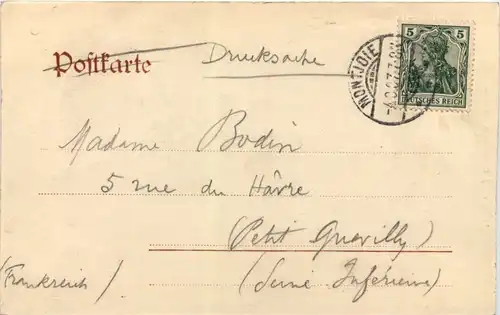 Postkarte
Drucksache
5 5
DEUTSCHES REICH
MONTJOIE
Madame Bodin
5 rue du Hâvre
(Petit Quevilly)
(Frankreich)
(Seine Inférieure)